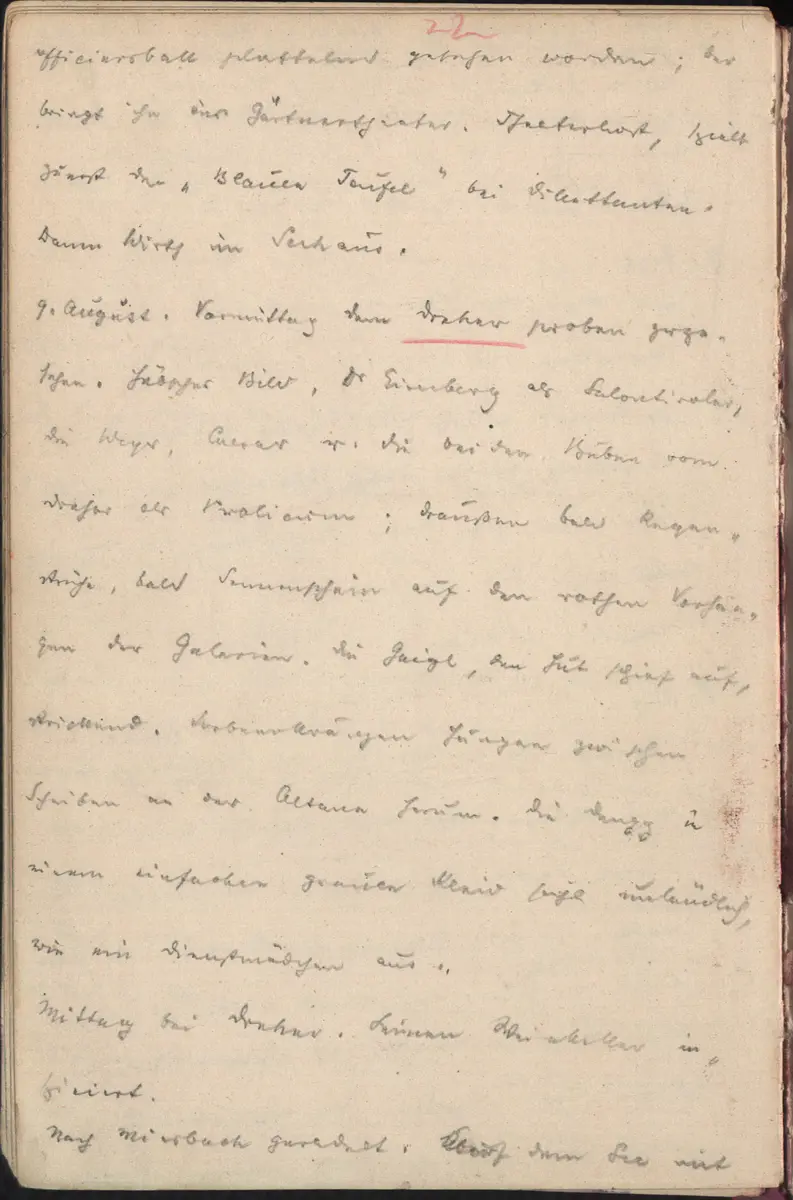 22
officiersball plattelnd gesehen worden; der
bringt ihn ins Gärtnertheater. Thaterhart, spielt
zuerst den „Blauen Teufel" bei Dilettanten.
Dann Wirth im Seehaus.
9. August. Vormittag dem Dreher proben zuge-
sehen. Hübsches Bild, Dr Eirenberg als Salontiroler,
die Meyer, u. die beiden Buben vom
Dreher als Publicum; draußen bald Regen„
striche, bald Sonnenschein auf den rothen Vorhän„
gen der Galerien. Die Gaigl, den Hut schief auf,
strickend. Lorbeerkränzen hängen zwischen
Scheiben an der Altane herum. Die Dengg in
einem einfachen grauen Kleid sieht
wie ein Dienstmädchen aus.
Mittag bei Dreher. Seinen Weinkeller in„
spiciert.
Nach Miesbach geradelt. dem See mit